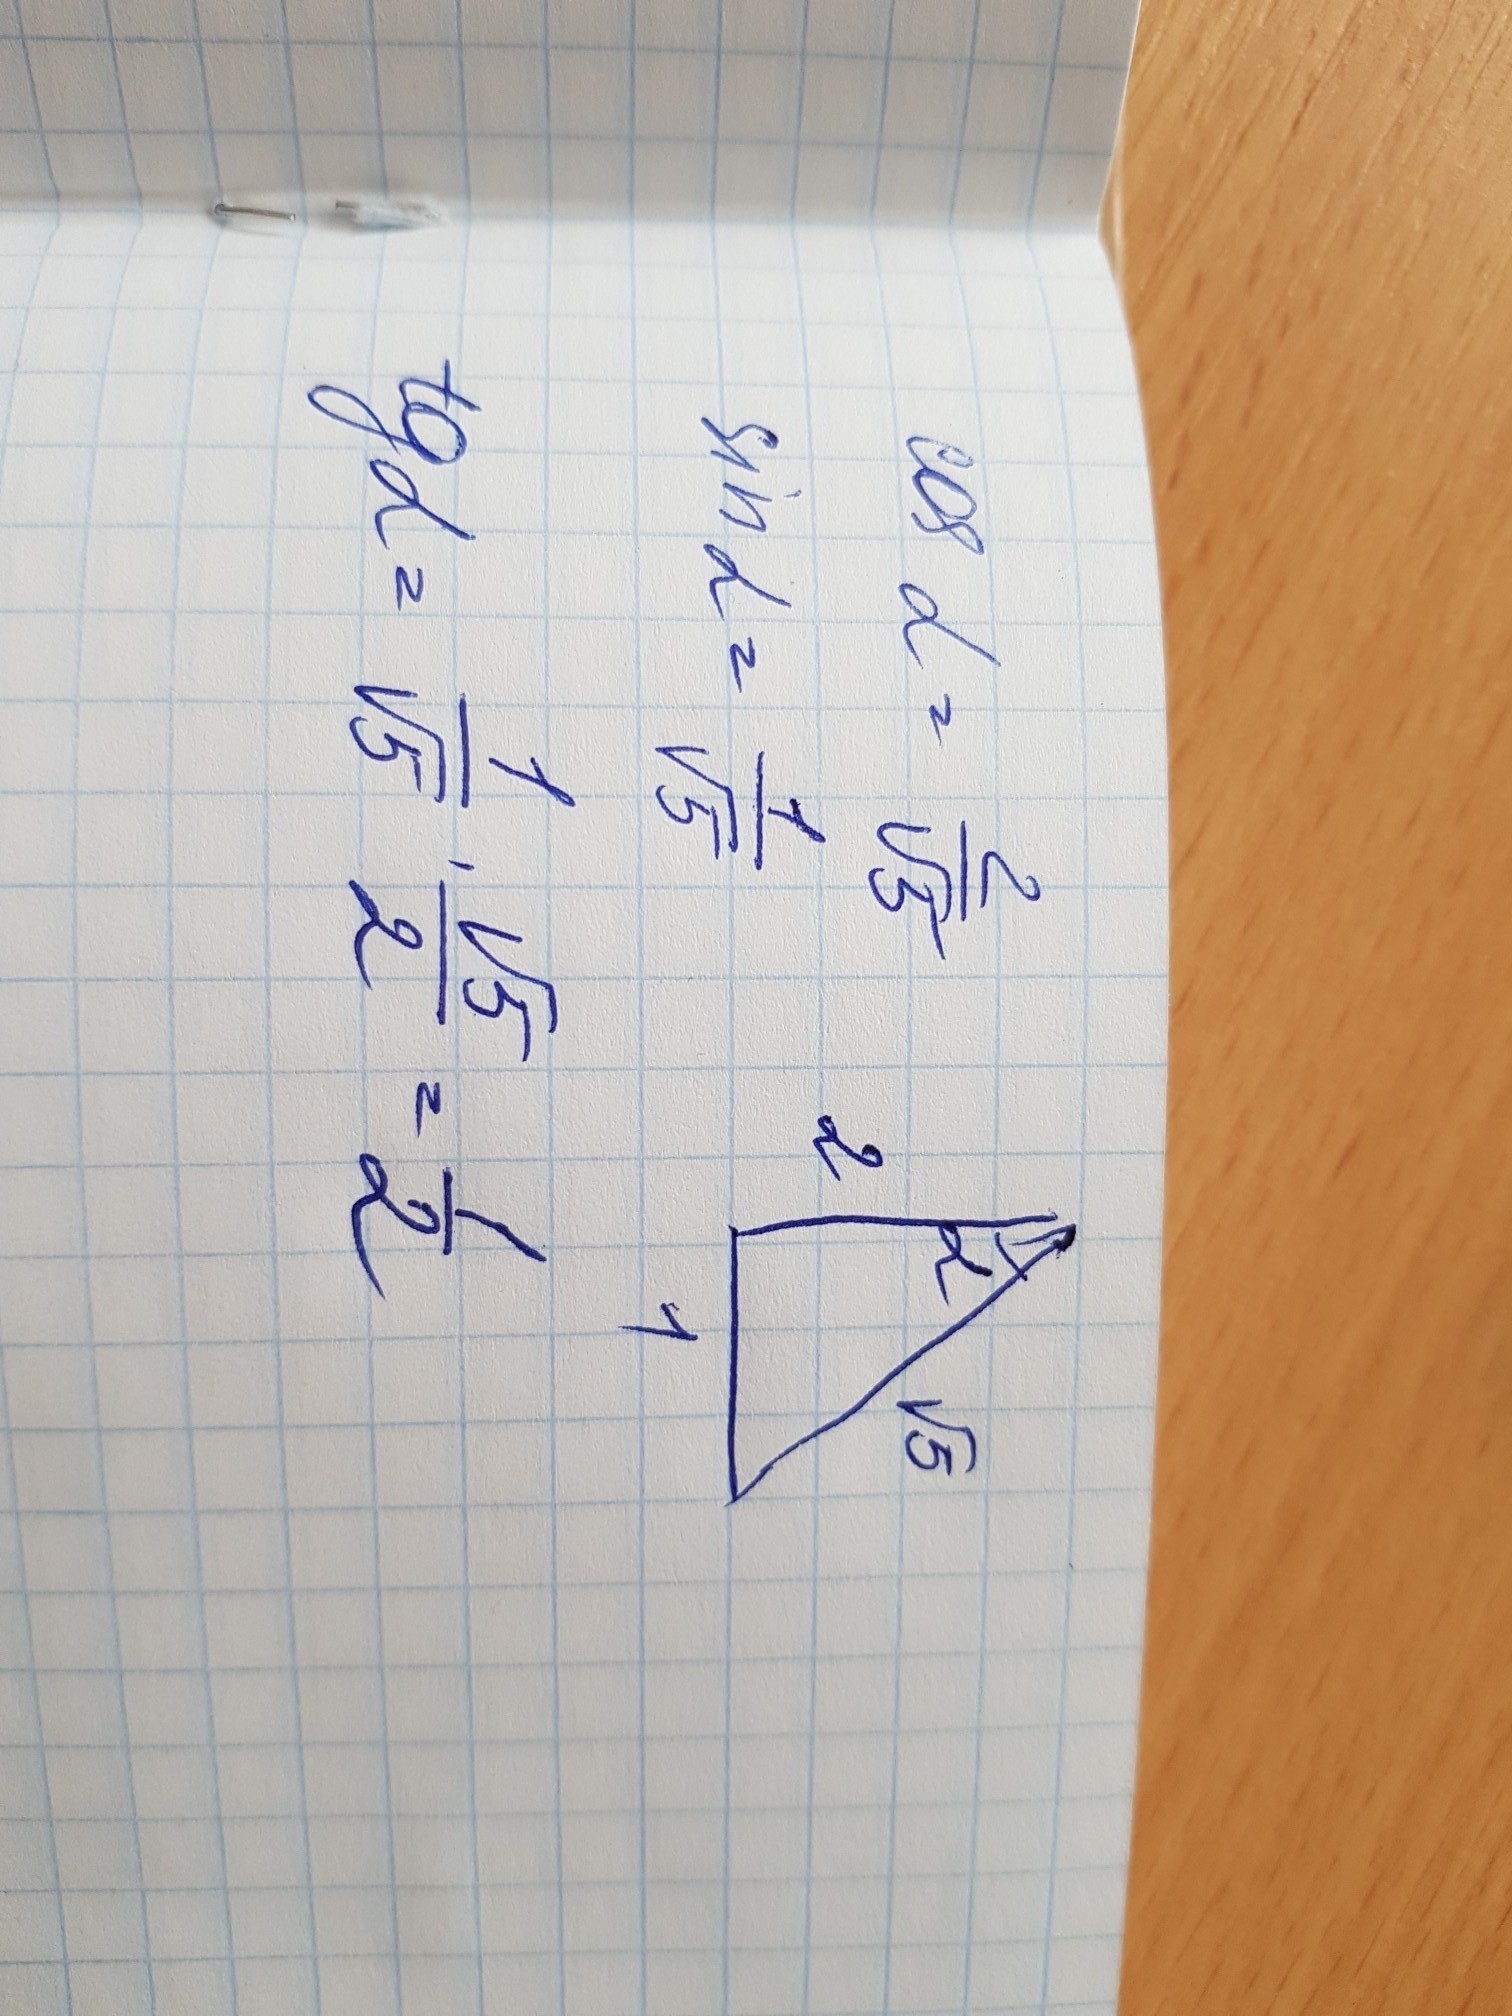 cos α = 2/√5
sin α = 1/√5
tg α = 1/√5 · √5/2 = 1/2
2
α
√5
1